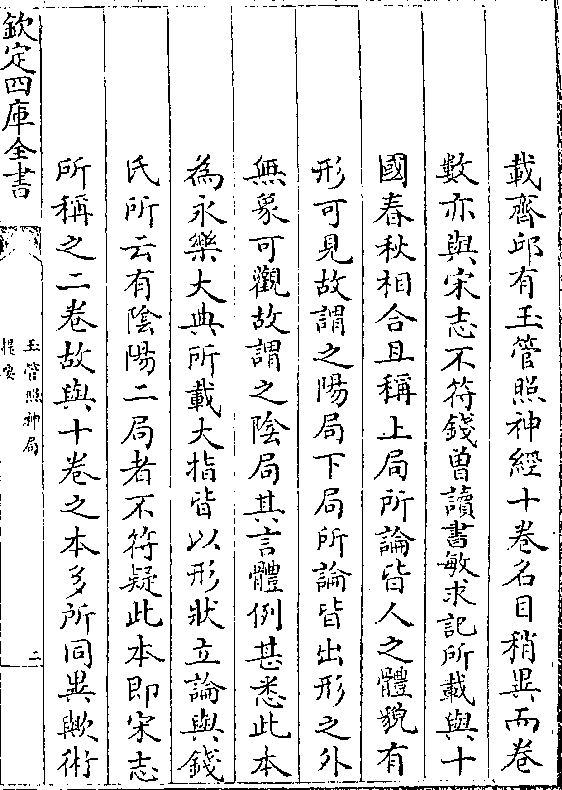 載齊邱有玉管照神經十卷名目稍異而卷
數亦與宋志不符錢曽讀書敏求記所載與十
國春秋相合且稱上局所論皆人之體貌有
形可見故謂之陽局下局所論皆出形之外
無象可觀故謂之陰局其言體例甚悉此本
為永樂大典所載大指皆以形狀立論與錢
氏所云有陰陽二局者不符疑此本即宋志
所稱之二卷故與十卷之本多所同異歟術
欽定四庫全書
玉管照神局
提要
二